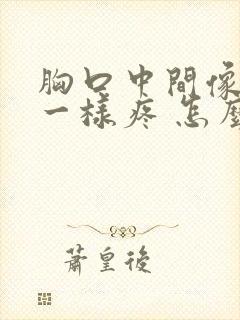 胸口中間像
一樣疼 怎麼
蕭皇後